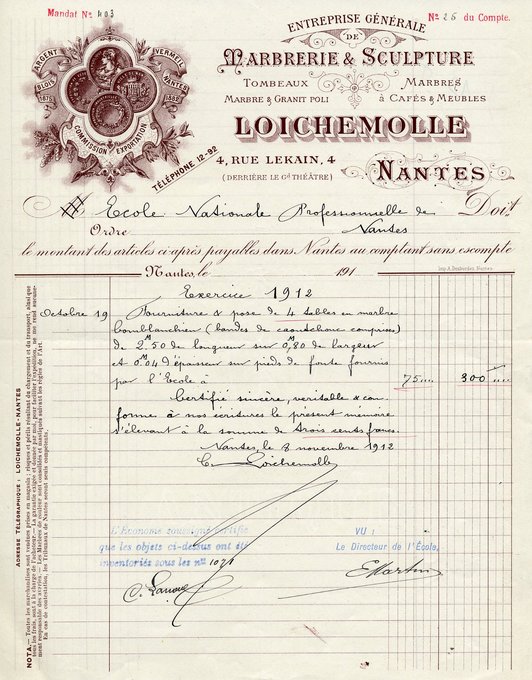 Mandat No 403
No 25 du Compte.
ENTREPRISE GÉNÉRALE
DE
MARBRERIE & SCULPTURE
TOMBEAUX
MARBRE & GRANIT POLI
MARBRES
à CAFÉS & MEUBLES
LOICHEMOLLE
4, RUE LEKAIN, 4
(DERRIÈRE LE Gd THÉÂTRE)
NANTES
ARGENT
VERMEIL
BLOIS
NANTES
COMMISSION EXPORTATION
TÉLÉPHONE 12-92
M Ecole Nationale Professionnelle de Doit
Ordre Nantes
le montant des articles ci-après payables dans Nantes au comptant sans escompte
Nantes, le 191
Exercice 1912
Octobre 19 Fourniture & pose de 4 tables en marbre
comblanchien (bandes de caoutchouc comprises)
de 2m50 de longueur sur 0m80 de largeur
et 0m04 d'épaisseur sur pieds de fonte fournis
par l'Ecole à 75 " 300 "
Certifié sincère, véritable & con
forme à nos écritures le présent mémoire
s'élevant à la somme de trois cents francs.
Nantes, le 8 novembre 1912
C. Loichemolle
L'Econome soussigné certifie
que les objets ci-dessus ont été
inventoriés sous les nos 1021
VU :
Le Directeur de l'École,
EMartin
ADRESSE TÉLÉGRAPHIQUE : LOICHEMOLLE-NANTES
NOTA.— Toutes les marchandises sont vendues prises en magasin ; risques et périls résultant du chargement et du transport, ainsi que
tous les frais, sont à la charge de l'acheteur.— La garantie exigée et donnée par moi, pour faciliter l'expédition, ne me rend aucune-
ment responsable des avaries.— Les Marbres de couleur sont consolidés et mastiqués suivant les règles de l'Art.
En cas de contestation, les Tribunaux de Nantes seront seuls compétents.